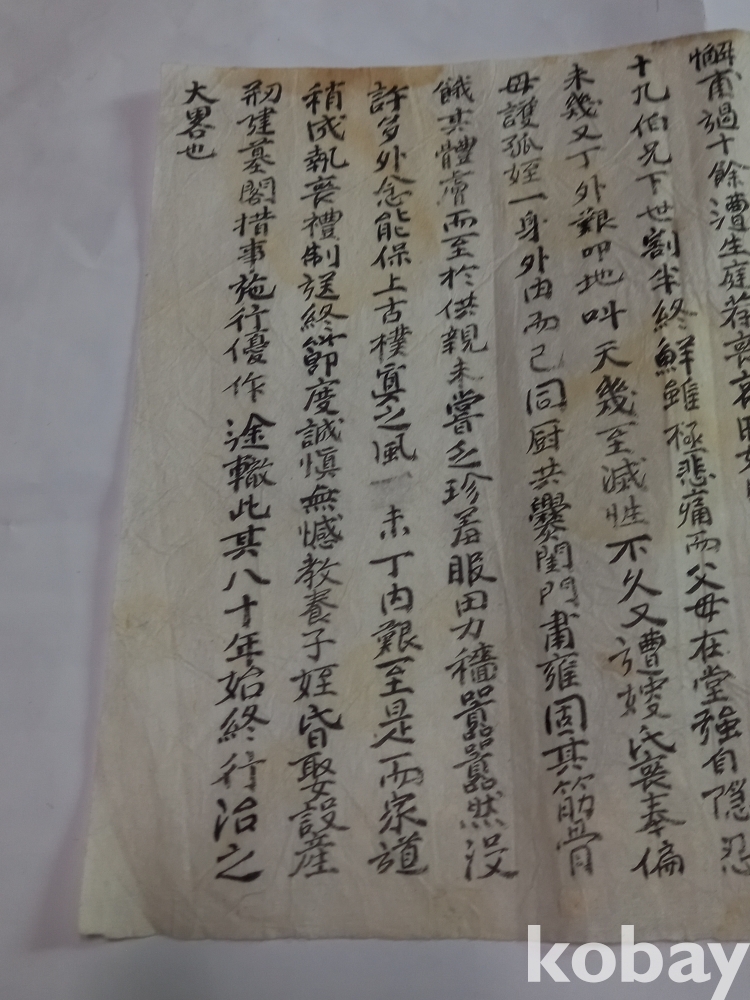 懈甫過十餘遭生庭荐喪
十九伯兄下世割半終鮮雖極悲痛而父母在堂強自隱忍
未幾又丁外艱叩地叫天幾至滅性不久又遭嫂氏喪奉偏
母護孤姪一身外內而已同厨共爨閨門肅雍固其筋骨
餓其體膚而至於供親未嘗乏珍羞服田力穡囂囂然沒
許多外念能保上古樸寘之風 未丁內艱至是而家道
稍成執喪禮制送終節度誠愼無憾敎養子姪昏娶設產
刱建墓閣措事施行優作 途轍此其八十年始終行治之
大畧也
kobay